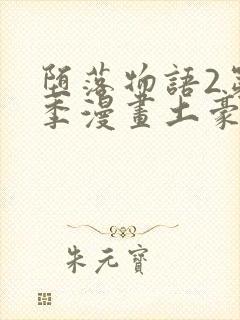 堕落物語2第
季漫畫土豪
朱元寶